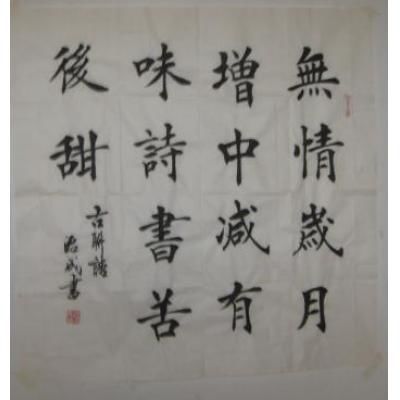 無情歲月
增中減有
味詩書苦
後甜
古聯語
治成書